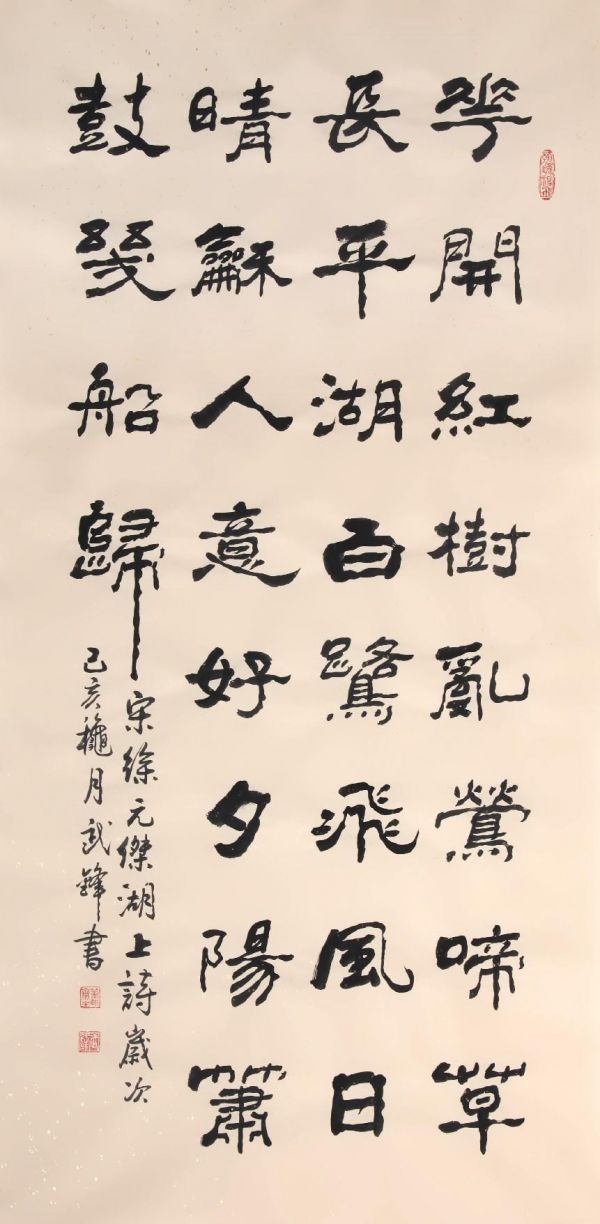 花開紅樹亂鶯啼草
長平湖百鷺飛風日
晴龢人意好夕陽簫
鼓幾船歸
宋徐元傑湖上詩歲次
己亥龝月武鋒書